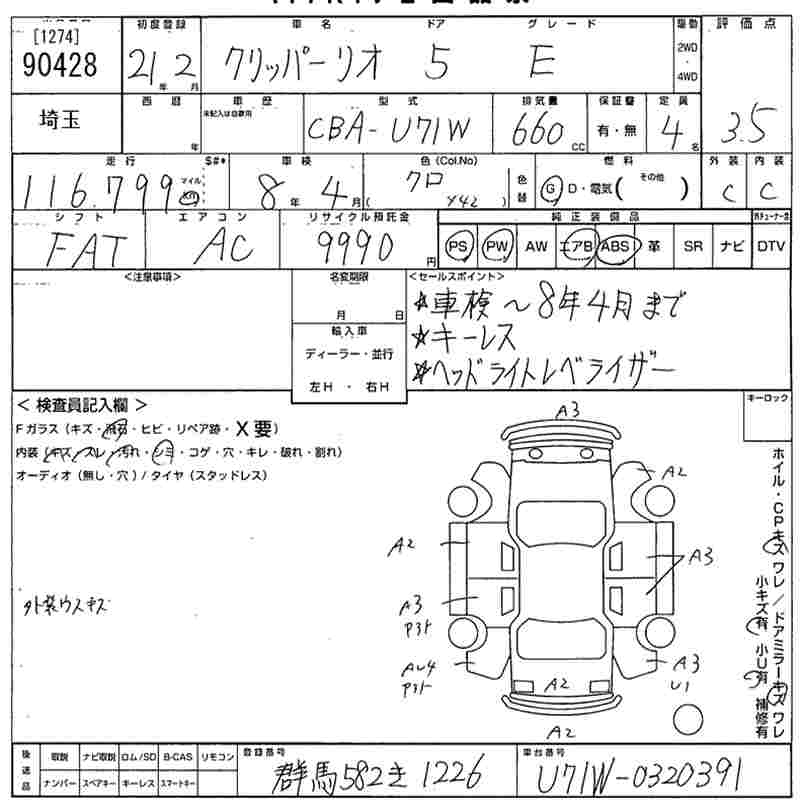 [1274]
90428
埼玉
初度登録
21年2月
車名
クリッパーリオ
ドア
5
グレード
E
駆動
2WD
・
4WD
評価点
3.5
西暦
年
車歴
未記入は自家用
型式
CBA-U71W
排気量
660cc
保証書
有・無
定員
4名
走行
116,799
マイル
km
S#*
車検
8年4月
色(Col.No)
クロ
( X42 )
色替
燃料
G D・電気( その他 )
外装
C
内装
C
シフト
FAT
エアコン
AC
リサイクル預託金
9990円
純正装備品
PS PW AW エアB ABS 革 SR ナビ DTV
<注意事項>
名変期限
月 日
輸入車
ディーラー・並行
左H ・ 右H
<セールスポイント>
☆車検〜8年4月まで
☆キーレス
☆ヘッドライトレベライザー
キーロック
<検査員記入欄>
Fガラス(キズ・飛石・ヒビ・リペア跡・X要)
内装(キズ・スレ・汚れ・シミ・コゲ・穴・キレ・破れ・割れ)
オーディオ(無し・穴)/タイヤ(スタッドレス)
外装ウスキズ
A3
A2
A2
A3
A3
A2
A3
U1
A2
ホイル・CPキズ ワレ/ドアミラーキズ ワレ
小キズ有 小U有 補修有
後送品
取説 ナビ取説 ロム/SD B-CAS リモコン
ナンバー スペアキー キーレス スマートキー
登録番号
群馬582き1226
車台番号
U71W-0320391